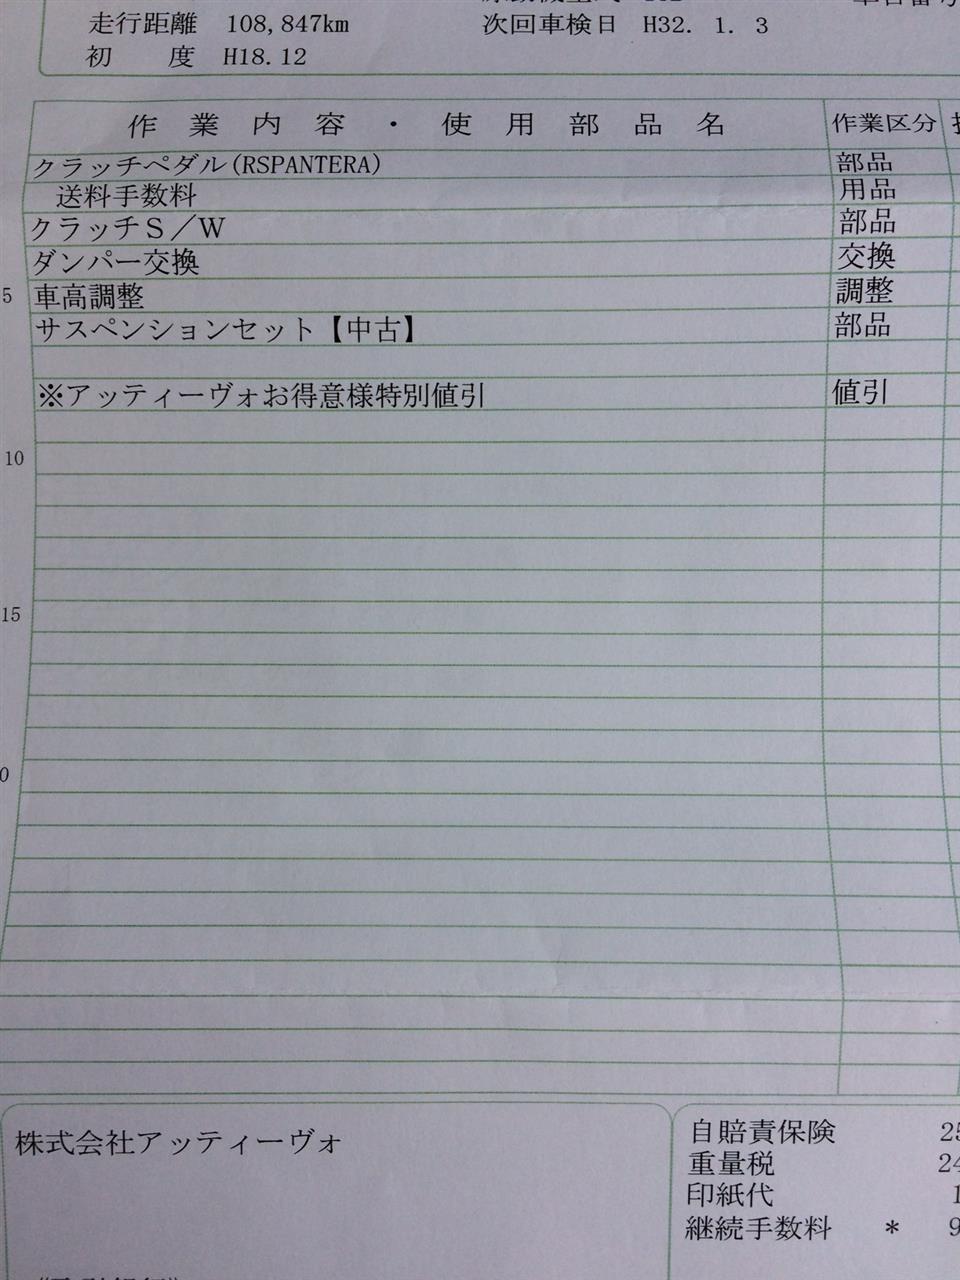 走行距離 108,847km
次回車検日 H32. 1. 3
初 度 H18.12
作業内容・使用部品名 作業区分
クラッチペダル(RSPANTERA) 部品
送料手数料 用品
クラッチS/W 部品
ダンパー交換 交換
5 車高調整 調整
サスペンションセット【中古】 部品
※アッティーヴォお得意様特別値引 値引
10
15
0
株式会社アッティーヴォ
自賠責保険 25
重量税 24
印紙代 1
継続手数料 * 9